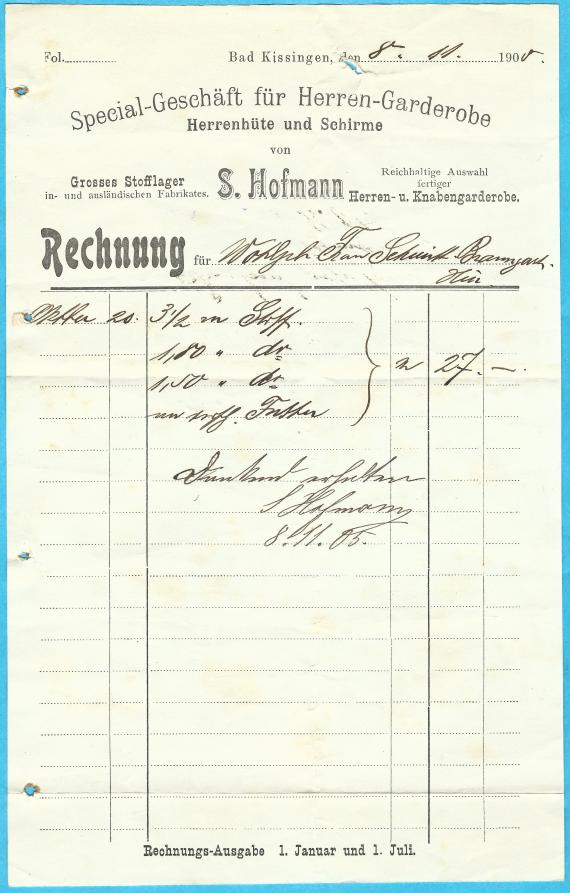 Fol.
Bad Kissingen, den 8. 11. 190
Special-Geschäft für Herren-Garderobe
Herrenhüte und Schirme
von
Grosses Stofflager
in- und ausländischen Fabrikates.
S. Hofmann
Reichhaltige Auswahl
fertiger
Herren- u. Knabengarderobe.
Rechnung für Frau
hier.
20. 3 1/2 m Stoff.
1,80 " do
1,50 " do
Futter
27.-.
Dankend erhalten
S Hofmann
8.11.05.
Rechnungs-Ausgabe 1. Januar und 1. Juli.